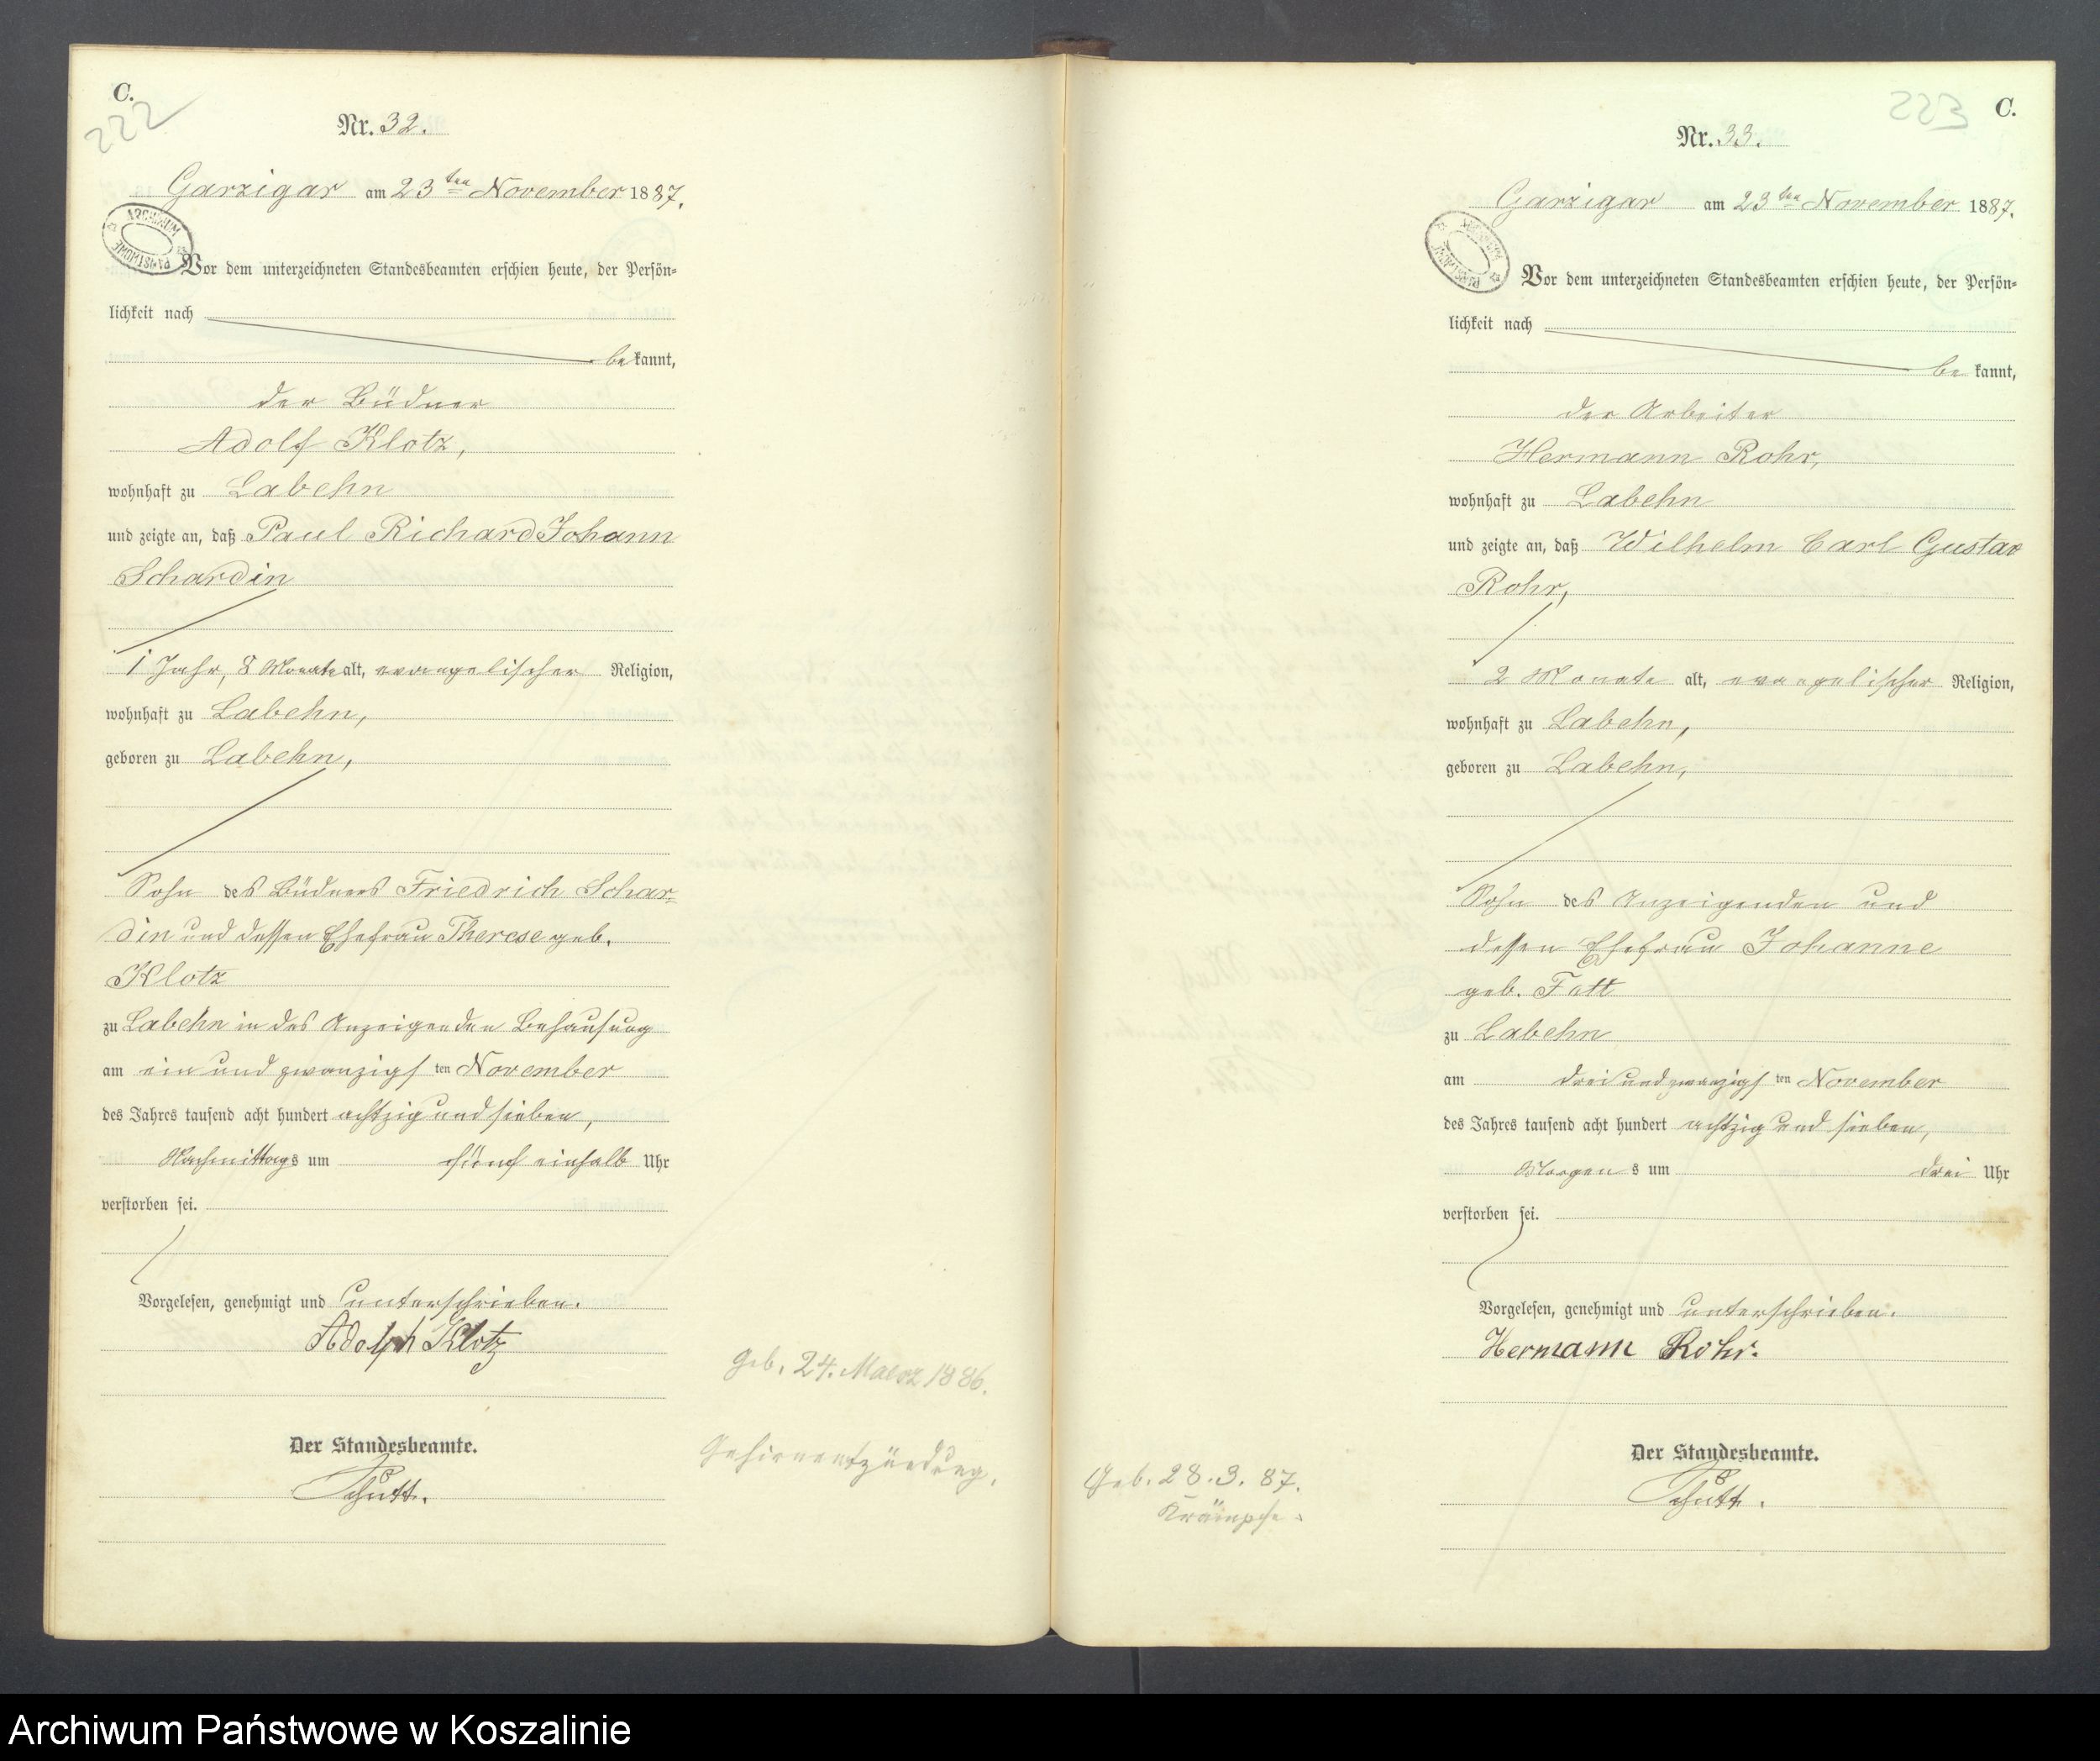 C.
222
Nr. 32.
Garzigar am 23ten November 1887.
ARCHIWUM PAŃSTWOWE
Vor dem unterzeichneten Standesbeamten erschien heute, der Persön-
lichkeit nach
bekannt,
der Büdner
Adolf Klotz,
wohnhaft zu Labehn
und zeigte an, daß Paul Richard Johann
Schardin
1 Jahr, 8 Monate alt, evangelischer Religion,
wohnhaft zu Labehn,
geboren zu Labehn,
Sohn des Büdners Friedrich Schar-
din und dessen Ehefrau Therese geb.
Klotz
zu Labehn in des Anzeigenden Behausung
am ein und zwanzigsten November
des Jahres tausend acht hundert achtzig und sieben,
Nachmittags um fünf einhalb Uhr
verstorben sei.
Vorgelesen, genehmigt und unterschrieben.
Adolph Klotz
Der Standesbeamte.
Schütt.
geb. 24. Maerz 1886.
Gehirnentzündung.
223
C.
Nr. 33.
Garzigar am 23ten November 1887.
Vor dem unterzeichneten Standesbeamten erschien heute, der Persön-
lichkeit nach
bekannt,
der Arbeiter
Hermann Rohr,
wohnhaft zu Labehn
und zeigte an, daß Wilhelm Carl Gustav
Rohr,
2 Monate alt, evangelischer Religion,
wohnhaft zu Labehn,
geboren zu Labehn,
Sohn des Anzeigenden und
dessen Ehefrau Johanne
geb. Fatt
zu Labehn
am drei und zwanzigsten November
des Jahres tausend acht hundert achtzig und sieben,
Morgens um drei Uhr
verstorben sei.
Vorgelesen, genehmigt und unterschrieben.
Hermann Rohr.
Der Standesbeamte.
Schütt.
Geb. 28.3.87.
Krämpfe.
Archiwum Państwowe w Koszalinie